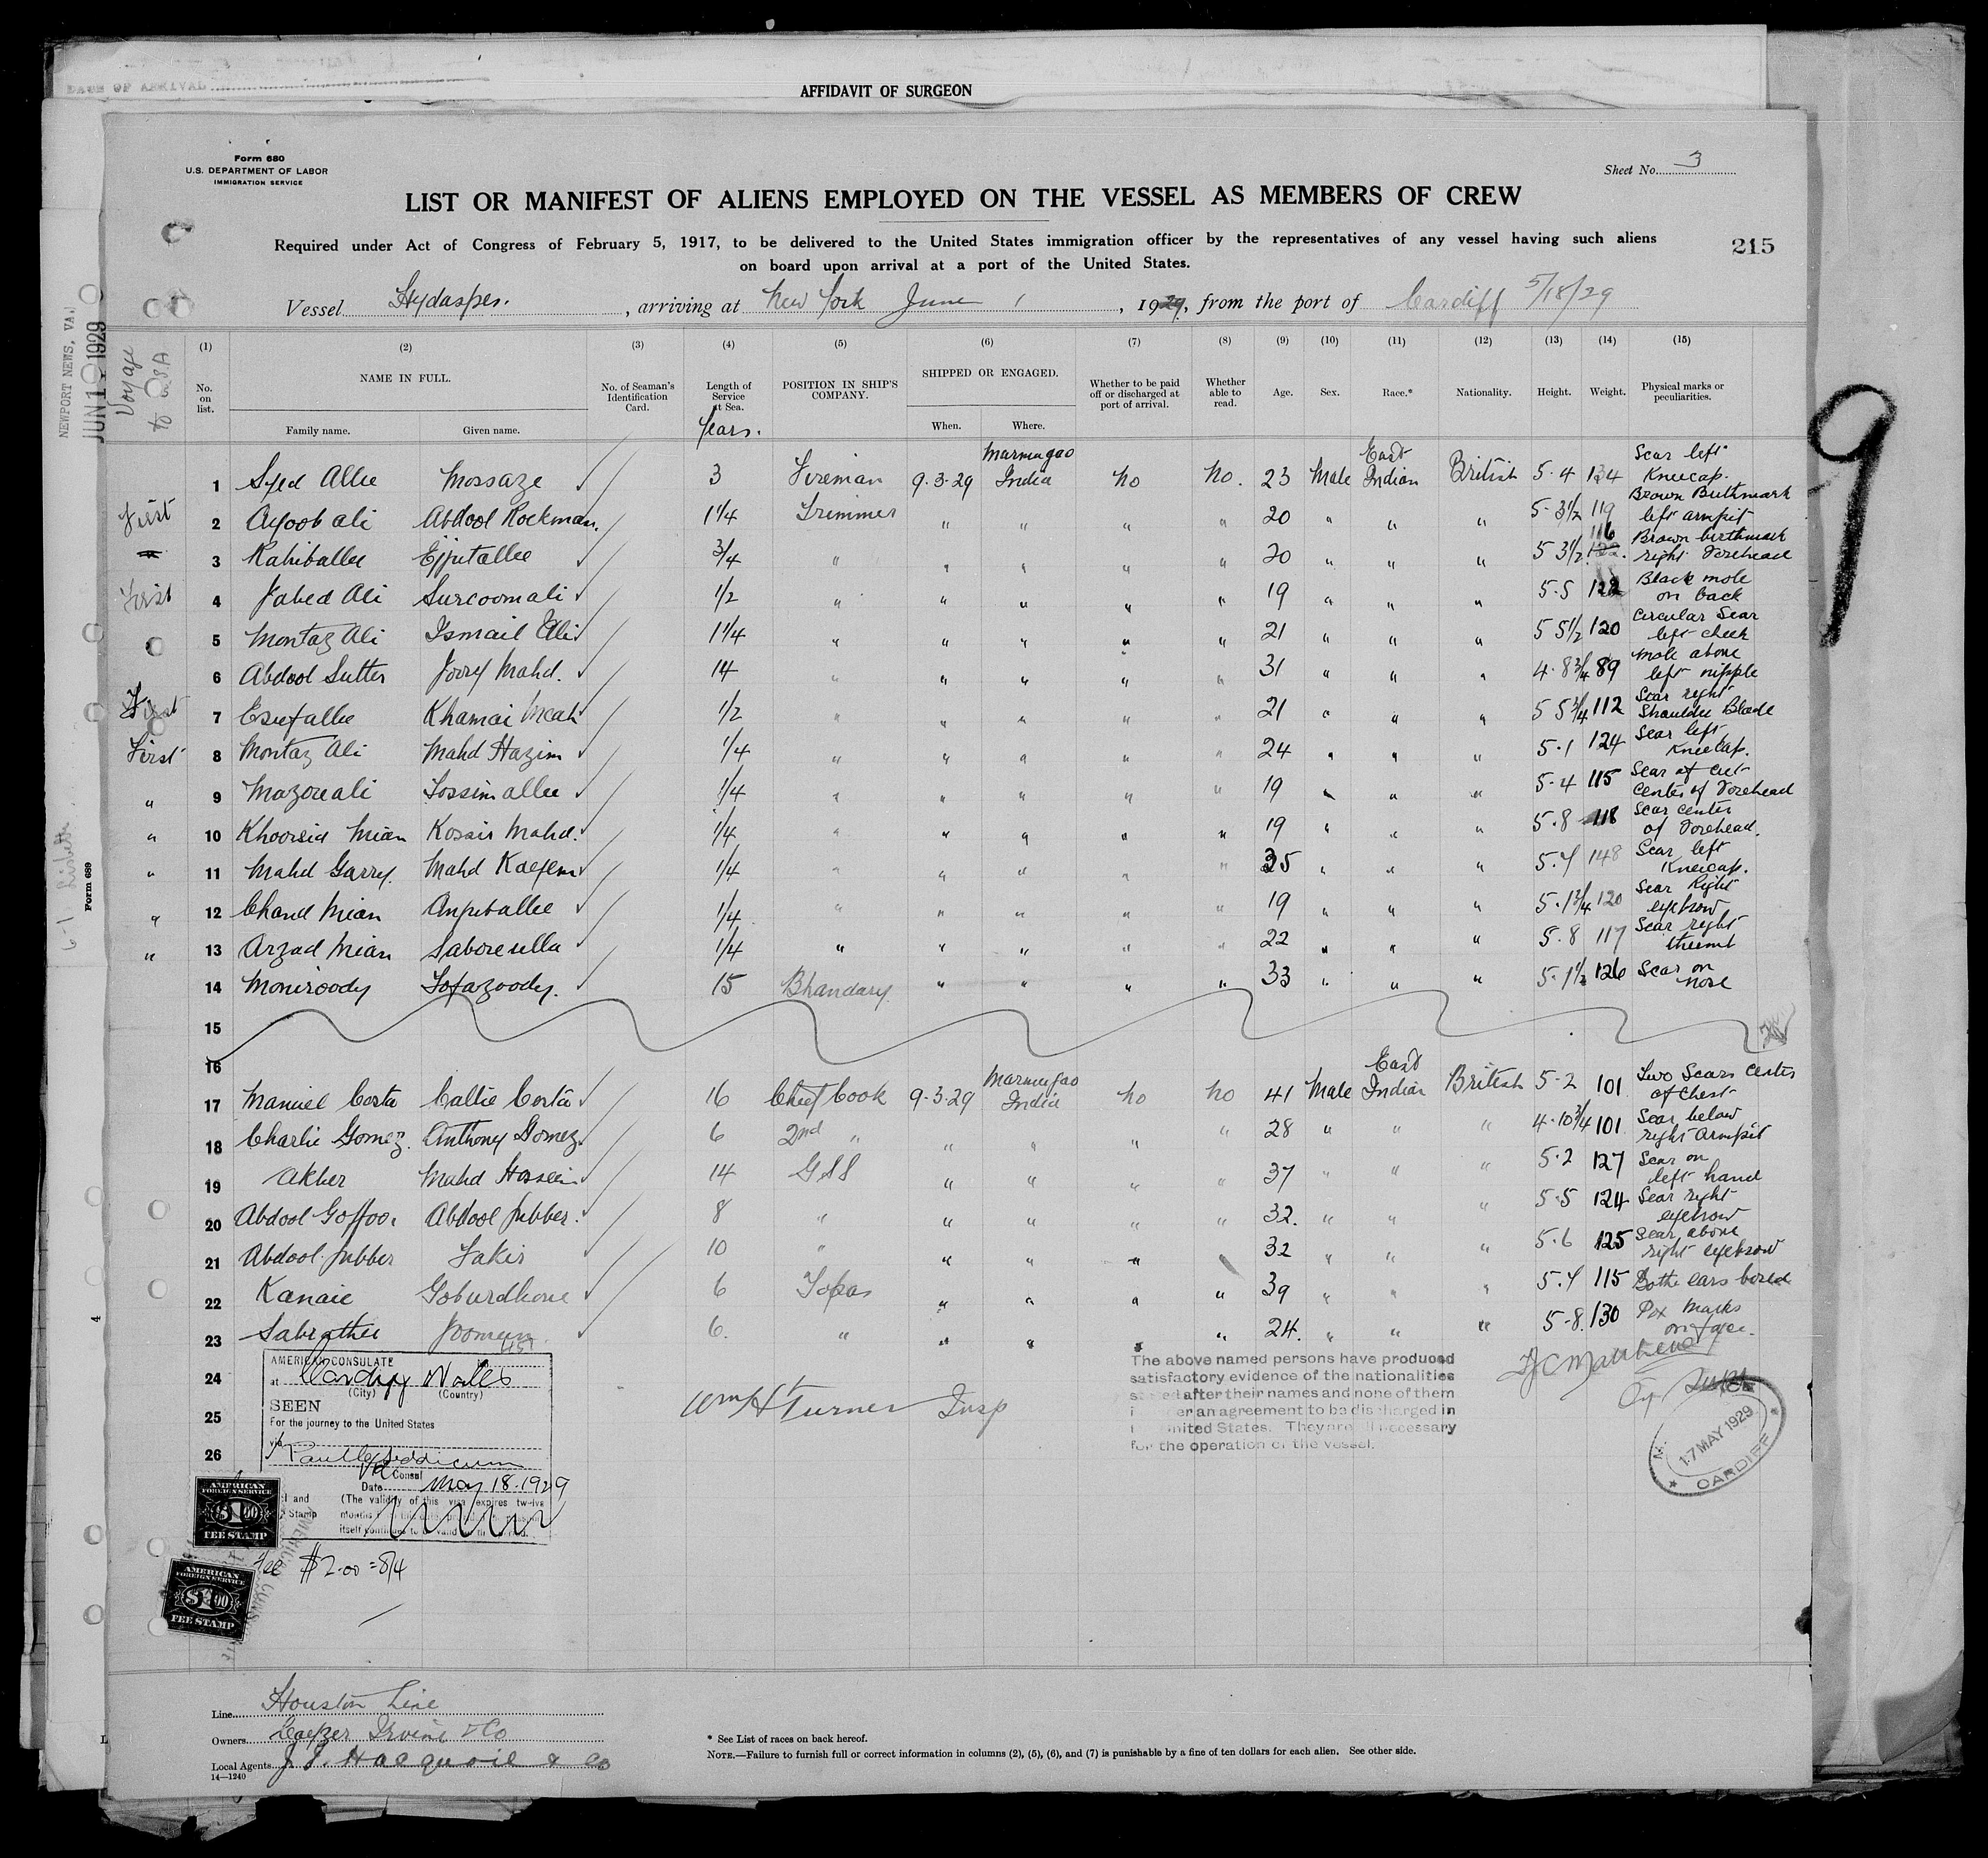 DATE OF ARRIVAL
AFFIDAVIT OF SURGEON
Form 680
U.S. DEPARTMENT OF LABOR
IMMIGRATION SERVICE
Sheet No. 3
LIST OR MANIFEST OF ALIENS EMPLOYED ON THE VESSEL AS MEMBERS OF CREW
Required under Act of Congress of February 5, 1917, to be delivered to the United States immigration officer by the representatives of any vessel having such aliens
on board upon arrival at a port of the United States.
215
Vessel Hydaspes. , arriving at New York June 1 , 1929, from the port of Cardiff 5/18/29
NEWPORT NEWS, VA.
JUN 1 1929
Voyage to USA
(1) (2) (3) (4) (5) (6) (7) (8) (9) (10) (11) (12) (13) (14) (15)
No. on list. NAME IN FULL. Family name. Given name. No. of Seaman's Identification Card. Length of Service at Sea. Years. POSITION IN SHIP'S COMPANY. SHIPPED OR ENGAGED. When. Where. Whether to be paid off or discharged at port of arrival. Whether able to read. Age. Sex. Race.* Nationality. Height. Weight. Physical marks or peculiarities.
1 Syed Allee Mossaze 3 Fireman 9.3.29 Marmugao India no no. 23 Male East Indian British 5.4 134 Scar left Kneecap.
First 2 Ayoob ali Abdool Rockman. 1 1/4 Trimmer " " " " 20 " " " 5.3 1/2 119 Brown Birthmark left armpit
3 Rahiballee Ejjutallee 3/4 " " " " " 20 " " " 5 3 1/2 116 Brown birthmark right Forehead
First 4 Jabed Ali Surcoomali 1/2 " " " " " 19 " " " 5.5 122 Black mole on back
5 Montaz Ali Ismail Ali 1 1/4 " " " " " 21 " " " 5 5 1/2 120 Circular Scar left cheek
6 Abdool Sutter Jorry Mahd. 14 " " " " " 31 " " " 4.8 3/4 89 mole above left nipple
First 7 Esufallee Khamai Meah 1/2 " " " " " 21 " " " 5 5 3/4 112 Scar right Shoulder Blade
First 8 Montaz Ali Mahd Hazim 1/4 " " " " " 24 " " " 5.1 124 Scar left Kneecap.
" 9 Mazoreali Tossimallee 1/4 " " " " " 19 " " " 5.4 115 Scar of cut center of Forehead
" 10 Khoorsid Mian Kosair Mahd. 1/4 " " " " " 19 " " " 5.8 118 Scar center of Forehead.
" 11 Mahd Garry. Mahd Kaeyem 1/4 " " " " " 35 " " " 5.4 148 Scar left Kneecap.
" 12 Chand Mian Anpeballee 1/4 " " " " " 19 " " " 5.1 3/4 120 Scar Right eyebrow
" 13 Arzad Mian Saboreulla 1/4 " " " " " 22 " " " 5.8 117 Scar right thumb
14 Moniroody Tofazoody. 15 Bhandary " " " " 33 " " " 5.1 1/2 126 Scar on nose
15
16
17 Manuel Costa Callie Costa 16 Chief Cook 9.3.29 Marmugao India no no 41 Male East Indian British 5.2 101 Two Scars Center of Chest
18 Charlie Gomez. Anthony Gomez 6 2nd " " " " " 28 " " " 4.10 3/4 101 Scar below right Armpit
19 Akber Mahd Hossein 14 GSS " " " " 37 " " " 5.2 127 Scar on left hand
20 Abdool Goffoor Abdool Jubber. 8 " " " " " 32. " " " 5.5 124 Scar right eyebrow
21 Abdool Jubber Fakir 10 " " " " 32 " " " 5.6 125 Scar above right eyebrow
22 Kanaie Goburdhone 6 Topas " " " " 39 " " " 5.4 115 Bothe ears bored
23 Sabrathee Joomun 6. " " " " " 24. " " " 5-8. 130 Pox marks on face.
24
25
26
AMERICAN CONSULATE
at Cardiff Wales
(City) (Country)
SEEN
For the journey to the United States
via
Vice Consul
Date May 18.1929
(The validity of this visa expires twelve
Wm H Turner Insp
The above named persons have produced
satisfactory evidence of the nationalities
stated after their names and none of them
er an agreement to be discharged in
United States. They are all necessary
for the operation of the vessel.
17 MAY 1929
CARDIFF
AMERICAN
FOREIGN SERVICE
$1.00
FEE STAMP
AMERICAN
FOREIGN SERVICE
$1.00
FEE STAMP
Fee $2.00 = 8/4
9
Form 689
4
Line Houston Line
Owners Irvine & Co
Local Agents & Co
14—1240
* See List of races on back hereof.
NOTE.—Failure to furnish full or correct information in columns (2), (5), (6), and (7) is punishable by a fine of ten dollars for each alien. See other side.